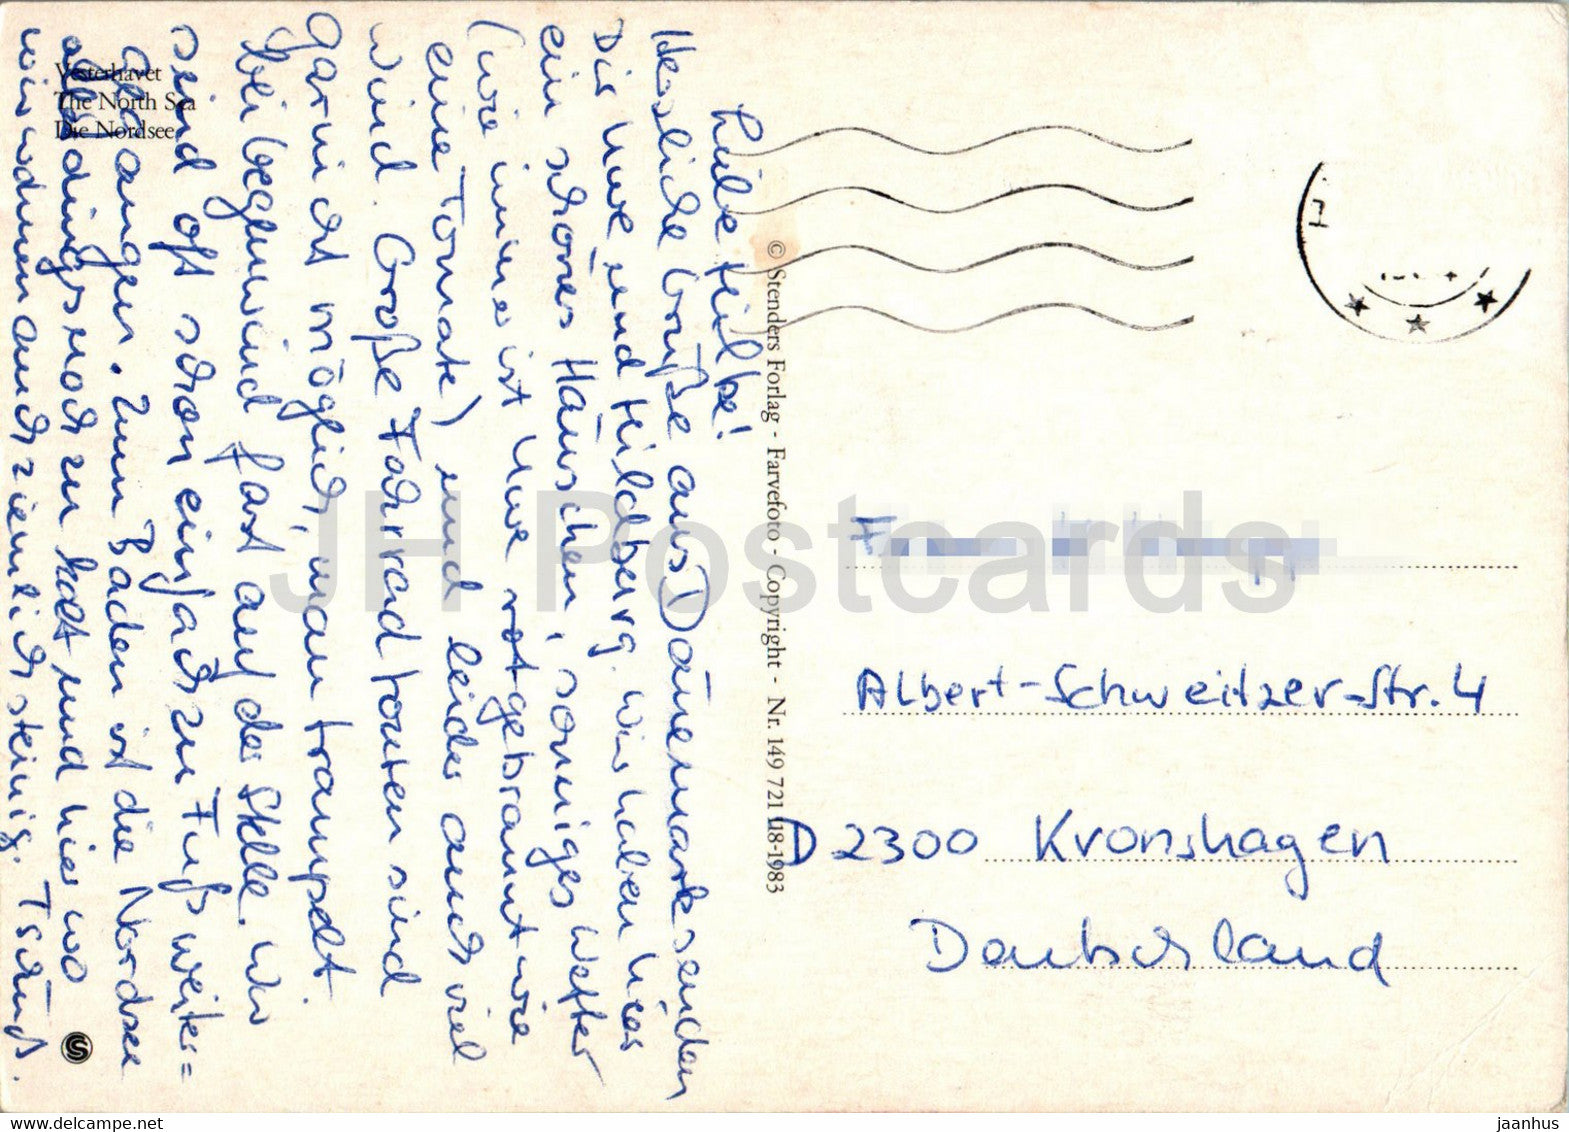 Vesterhavet
The North Sea
Die Nordsee
Liebe Hilbe!
Herzliche Grüße aus Dänemark senden
Dir Uwe und Hildburg. Wir haben hier
ein schönes Häuschen, sonniges Wetter
(wie immer ist Uwe rot gebrannt wie
eine Tomate) und leider auch viel
Wind. Große Fahrradtouren sind
garnicht möglich, man trampelt
bei Gegenwind fast auf der Stelle. Wir
sind oft schon einfach zu Fuß weiter=
gegangen. Zum Baden ist die Nordsee
allerdings noch zu kalt und hier wo
wir wohnen auch ziemlich steinig. Tschüß.
© Stenders Forlag - Farvefoto - Copyright - Nr. 149 721 118-1983
F
Albert-Schweitzer-Str. 4
D 2300 Kronshagen
Deutschland
JH Postcards
www.delcampe.net
jaanhus